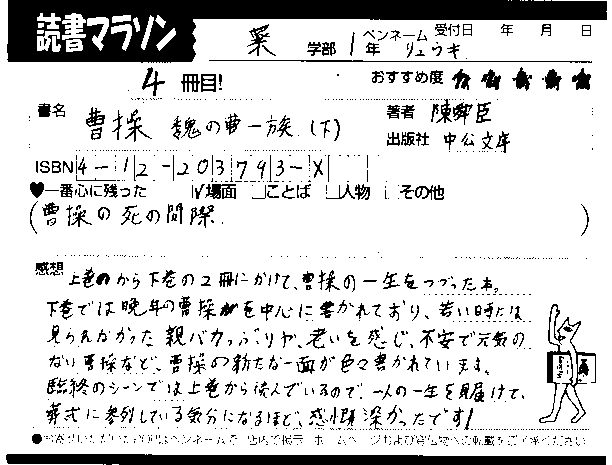 読書マラソン
薬 学部 1年 ペンネーム リュウキ 受付日 年 月 日
4 冊目! おすすめ度
書名 曹操 魏の曹一族(下) 著者 陳舜臣
出版社 中公文庫
ISBN 4-12-203793-X
♥一番心に残った ☑場面 □ことば □人物 □その他
(曹操の死の間際)
感想 上巻のから下巻の2冊にかけて、曹操の一生をつづった本。
下巻では晩年の曹操を中心に書かれており、若い時には
見られなかった親バカっぷりや、老いを感じ、不安で元気の
ない曹操など、曹操の新たな一面が色々書かれています。
臨終のシーンでは上巻から読んでいるので、一人の一生を見届けて、
葬式に参列している気分になるほど、感慨深かったです!
●お寄せいただいた声はペンネームで、店内で掲示、ホームページおよび宣伝物への転載をご了承ください